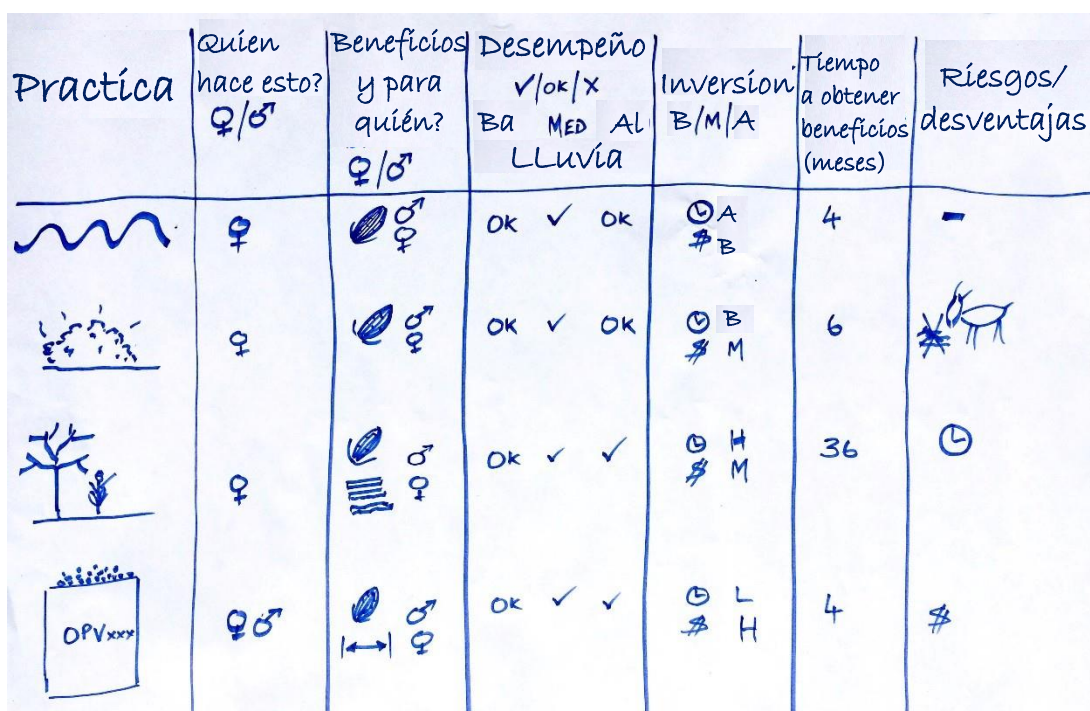 Practica
Quien
hace esto?
♀/♂
Beneficios
y para
quién?
♀/♂
Desempeño
✓/OK/X
Ba MED Al
LLuvia
Inversion
B/M/A
Tiempo
a obtener
beneficios
(meses)
Riesgos/
desventajas
♀
♂
♀
OK ✓ OK
A
$ B
4
-
♀
♂
♀
OK ✓ OK
B
$ M
6
♀
♂
♀
OK ✓ ✓
H
$ M
36
OPVxxx
♀♂
♂
♀
OK ✓ ✓
L
$ H
4
$